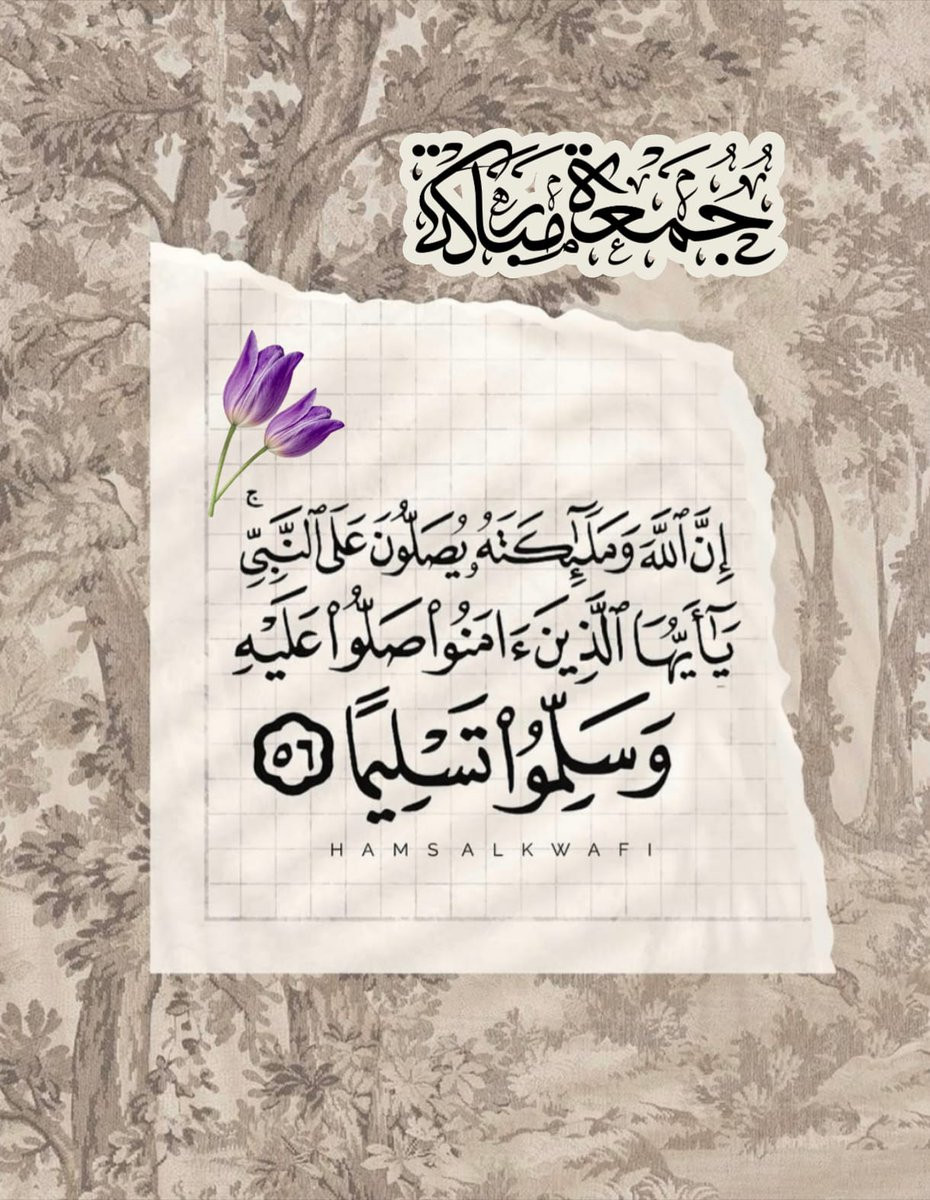 جُمُعَة مُبَارَكَة
إِنَّ ٱللَّهَ وَمَلَٰٓئِكَتَهُۥ يُصَلُّونَ عَلَى ٱلنَّبِىِّ ۚ
يَٰٓأَيُّهَا ٱلَّذِينَ ءَامَنُوا۟ صَلُّوا۟ عَلَيْهِ
وَسَلِّمُوا۟ تَسْلِيمًا ٥٦
HAMSALKWAFI